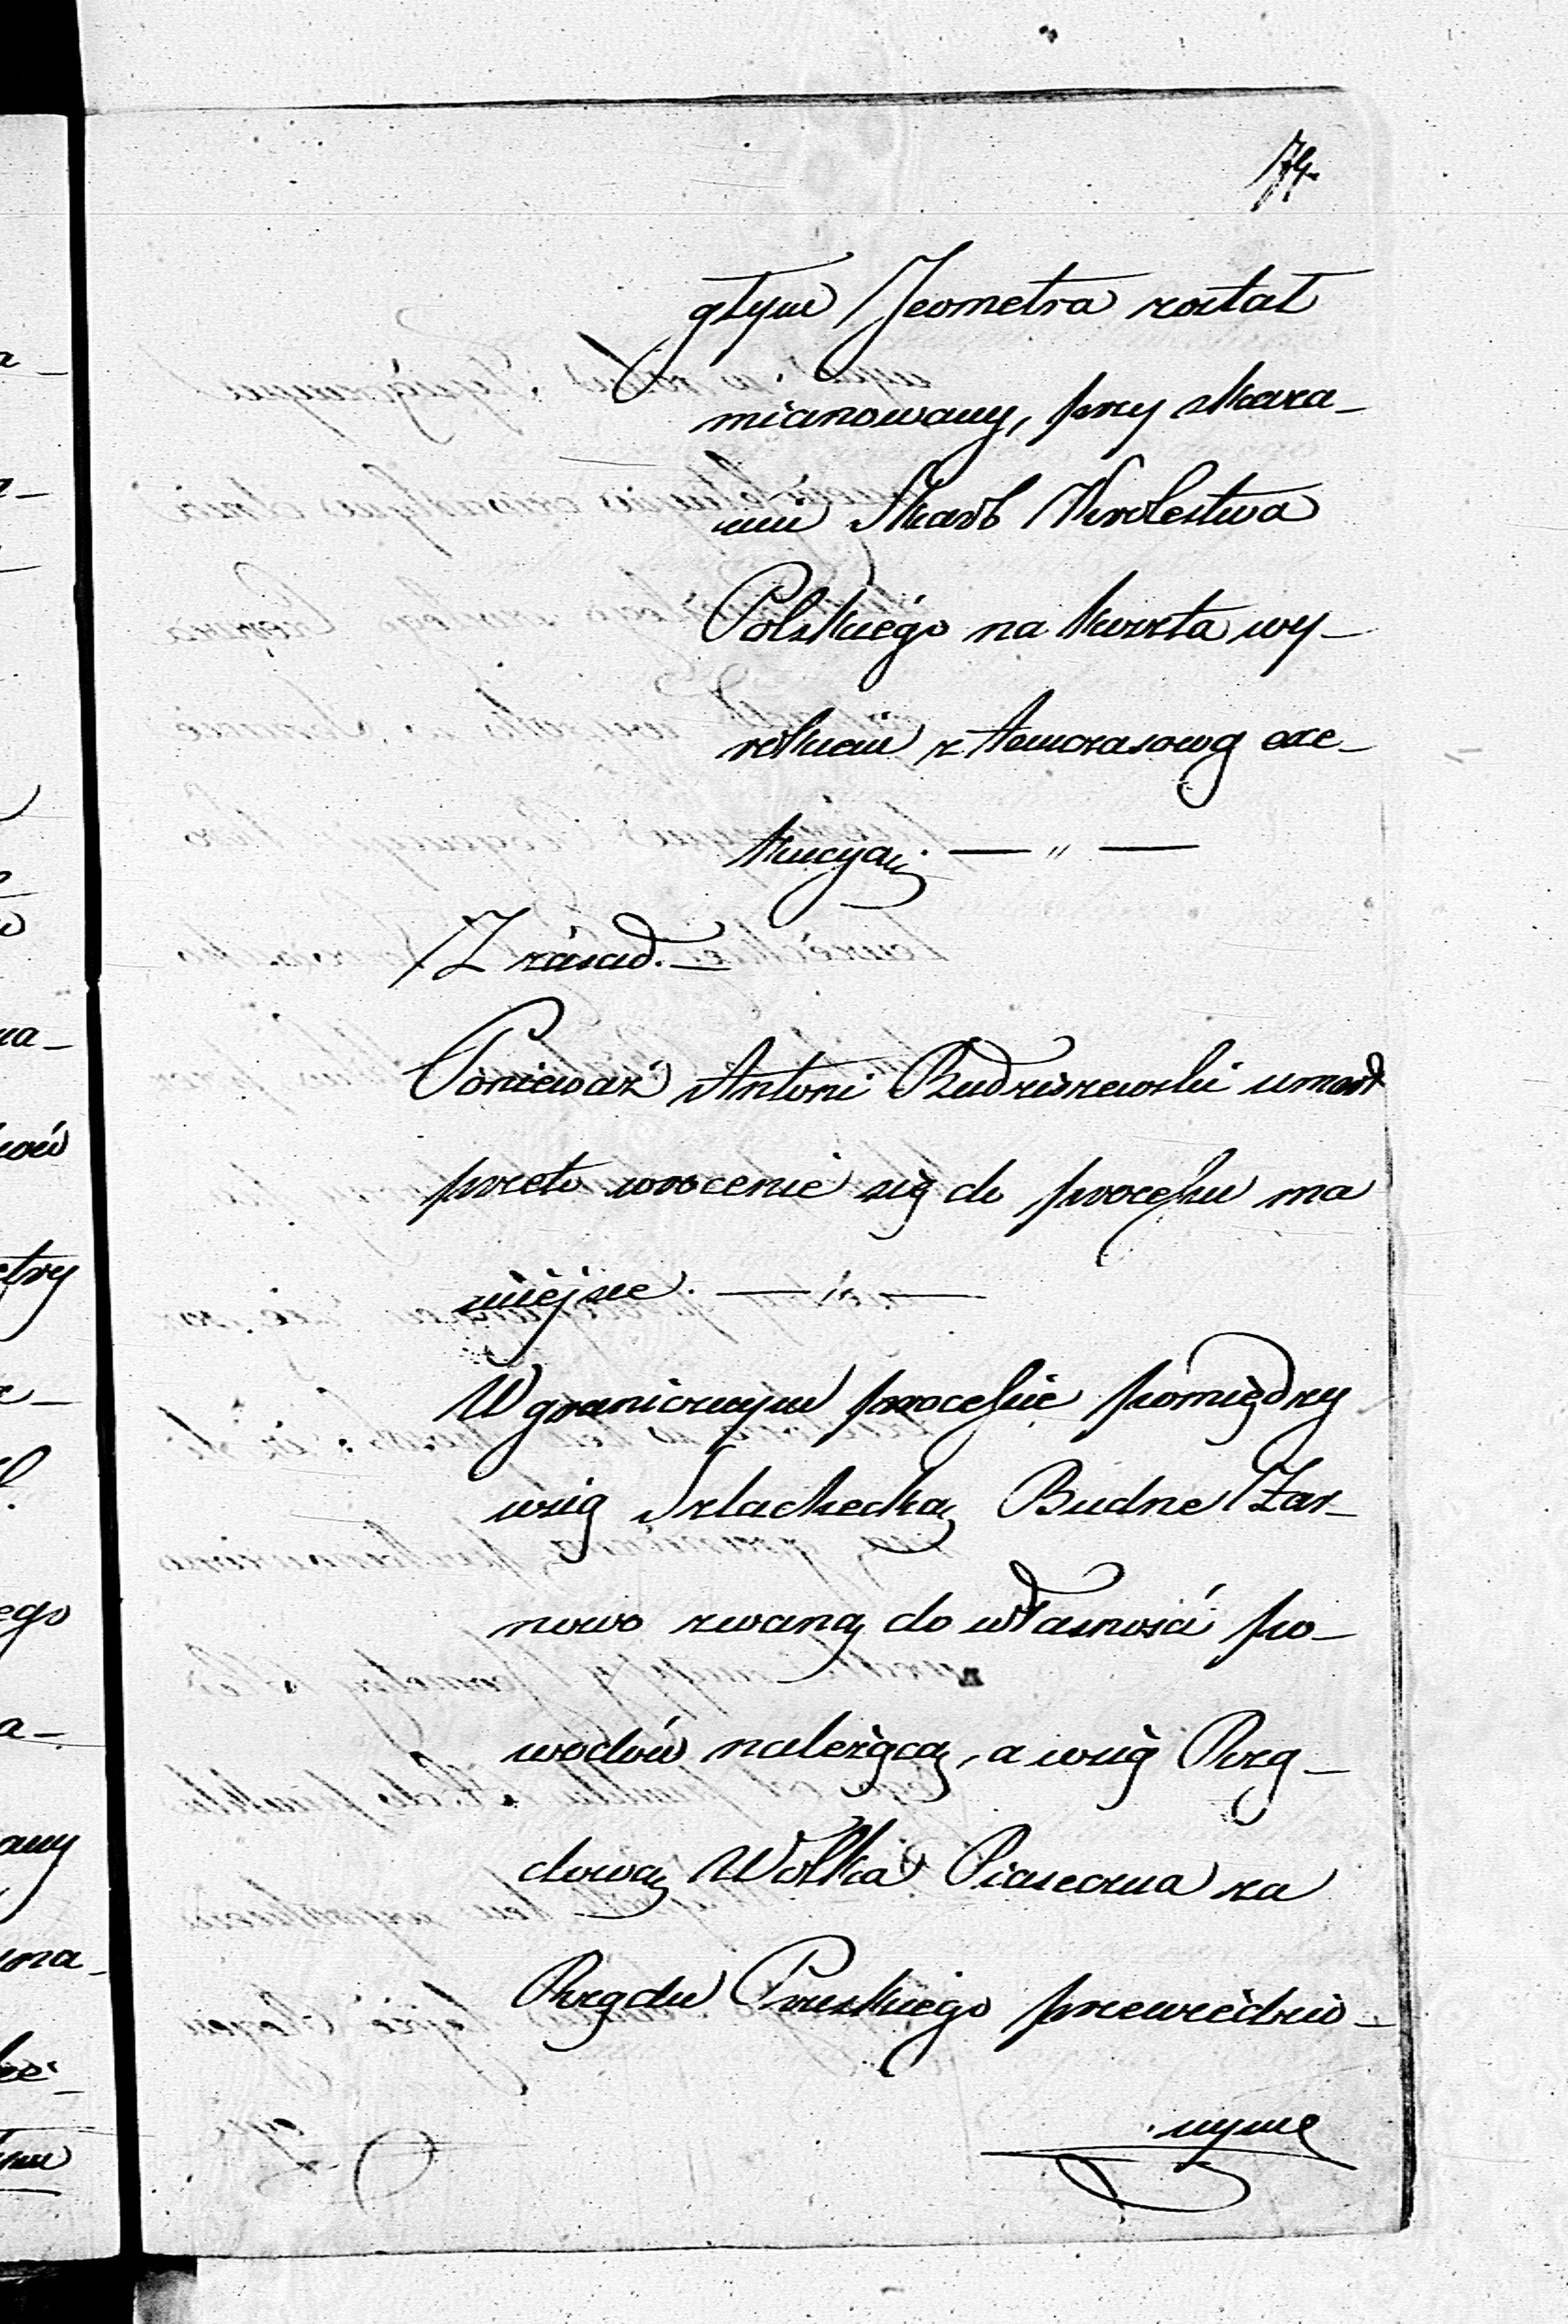 74.
głym Jeometra został
mianowany, przy skaza-
niu Skarb Krolestwa
Polskiego na koszta wy-
rokiem z temczasową exe-
kucyą. — " —
Z zásad. —
Ponieważ Antoni Budziszewski umarł
przeto wrocenie się do processu ma
miéjsce. — " —
W granicznym processie pomiędzy
wsią Szlachecką Budne Żar-
nowo zwaną do własności po-
wodów należącą, a wsią Rzą-
dową Wolka Piaseczna za
Rządu Pruskiego przewiedzio-
nym